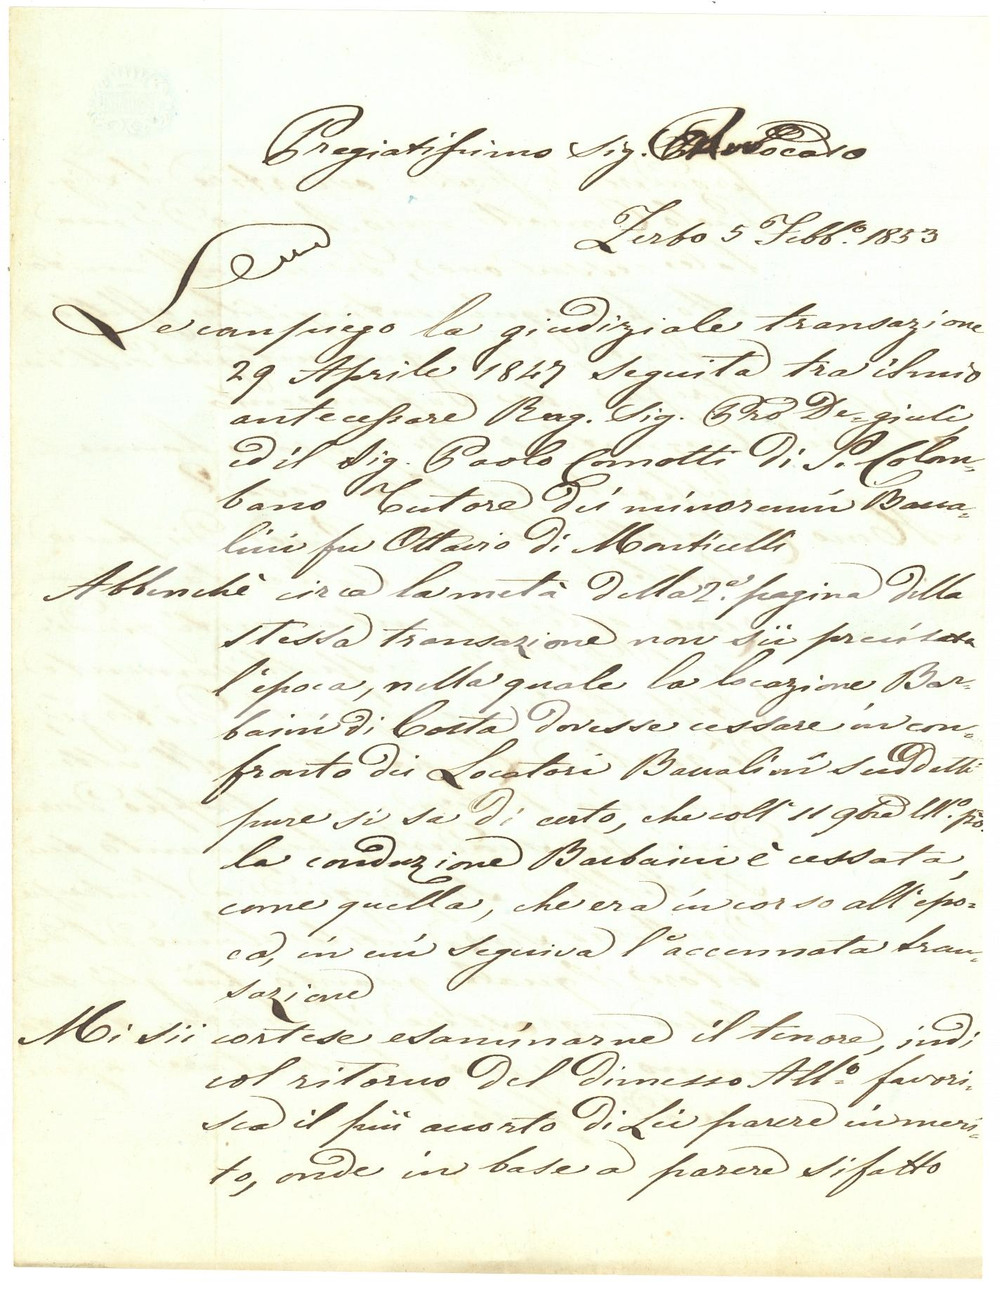 Pregiatissimo Sig. Avvocato
Zerbo 5 Febb.o 1853
Le campiego la giudiziale transazione
29 Aprile 1847 seguita tra il mio
antecessore Rag. Sig. Pro De=giuli
ed il Sig. Paolo Comotti di S. Colom=
bano Tutore dei minorenni Bassa=
lini fu Ottavio di Monticelli
Abbenchè circa la metà della 2.a pagina della
stessa transazione non sii precisata
l'epoca, nella quale la locazione Bar=
baini di Costa dovesse cessare in con=
fronto dei Locatori Bassalini suddetti
pure si sa di certo, che coll' 11 9bre
la conduzione Barbaini è cessata,
come quella, che era in corso all'epo=
ca, in cui seguiva l'accennata tran=
sazione
Mi sii cortese esaminarne il tenore, indi
col ritorno del dimesso All.o favori=
sca il più accorto di Lei parere in meri=
to, onde in base a parere sifatto